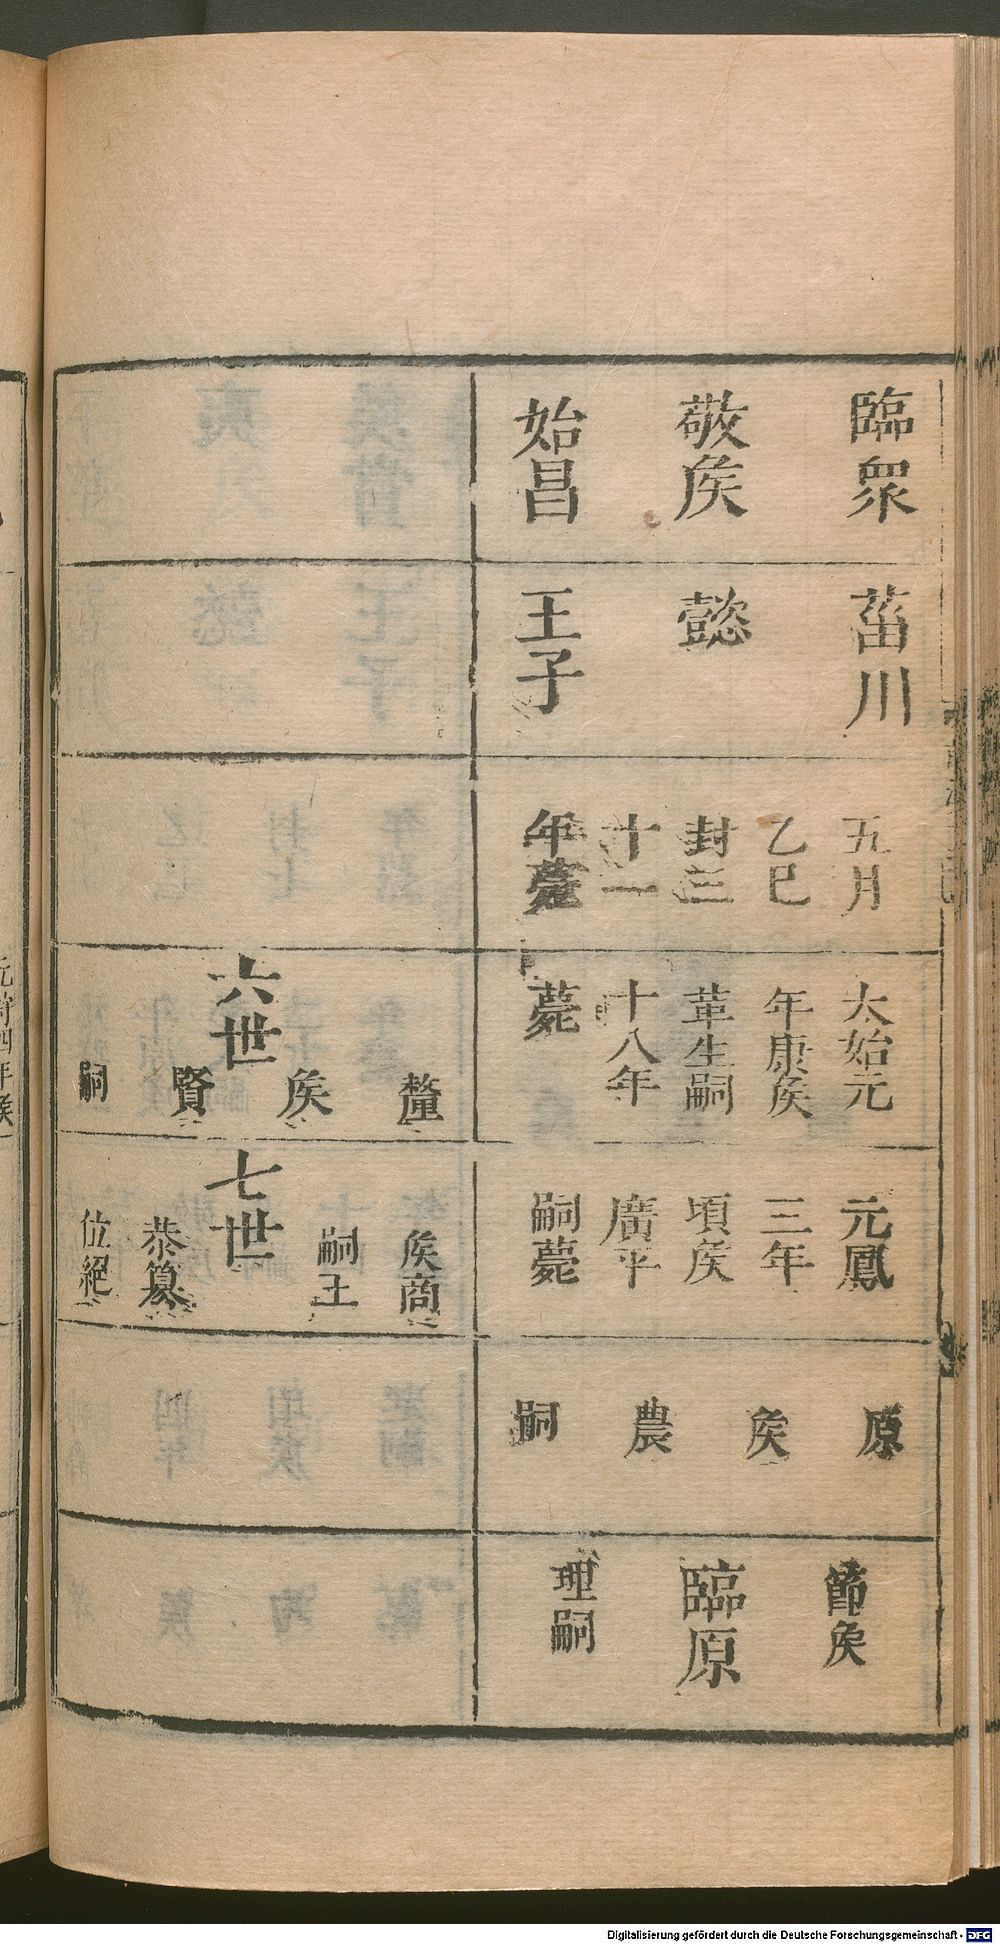 臨眾
敬矦
始昌
菑川
懿
王子
五月
乙巳
封三
十一
年薨
太始元
年康矦
革生嗣
十八年
薨
元鳳
三年
頃矦
廣平
嗣薨
原
矦
農
嗣
節矦
臨原
理嗣
釐
矦
六世
賢
嗣
矦商
嗣王
七世
恭篡
位絕
元封四年矦
Digitalisierung gefördert durch die Deutsche Forschungsgemeinschaft - DFG